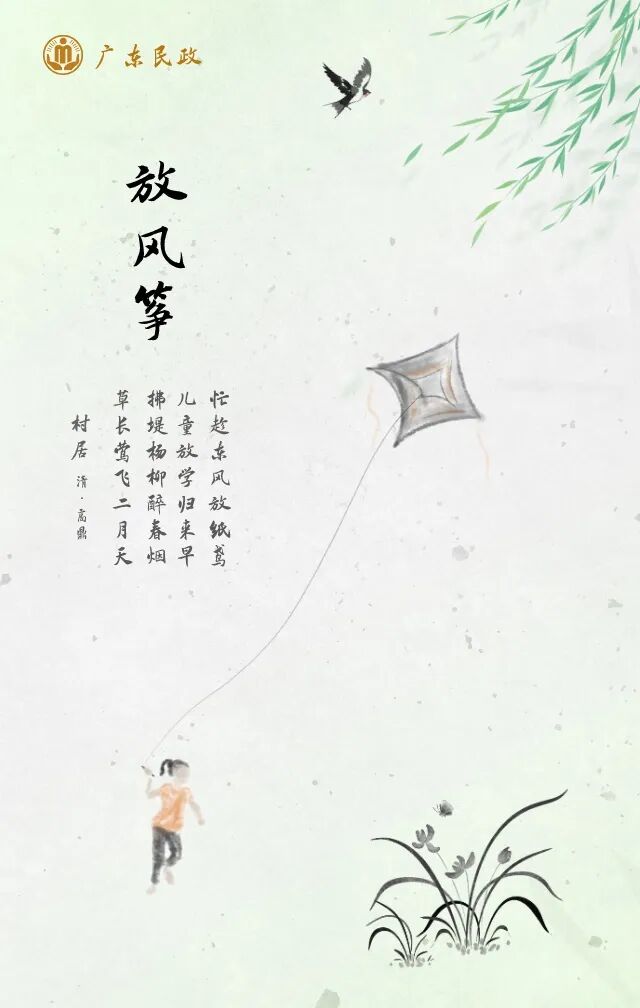 广东民政
放风筝
村居 清·高鼎
草长莺飞二月天
拂堤杨柳醉春烟
儿童放学归来早
忙趁东风放纸鸢